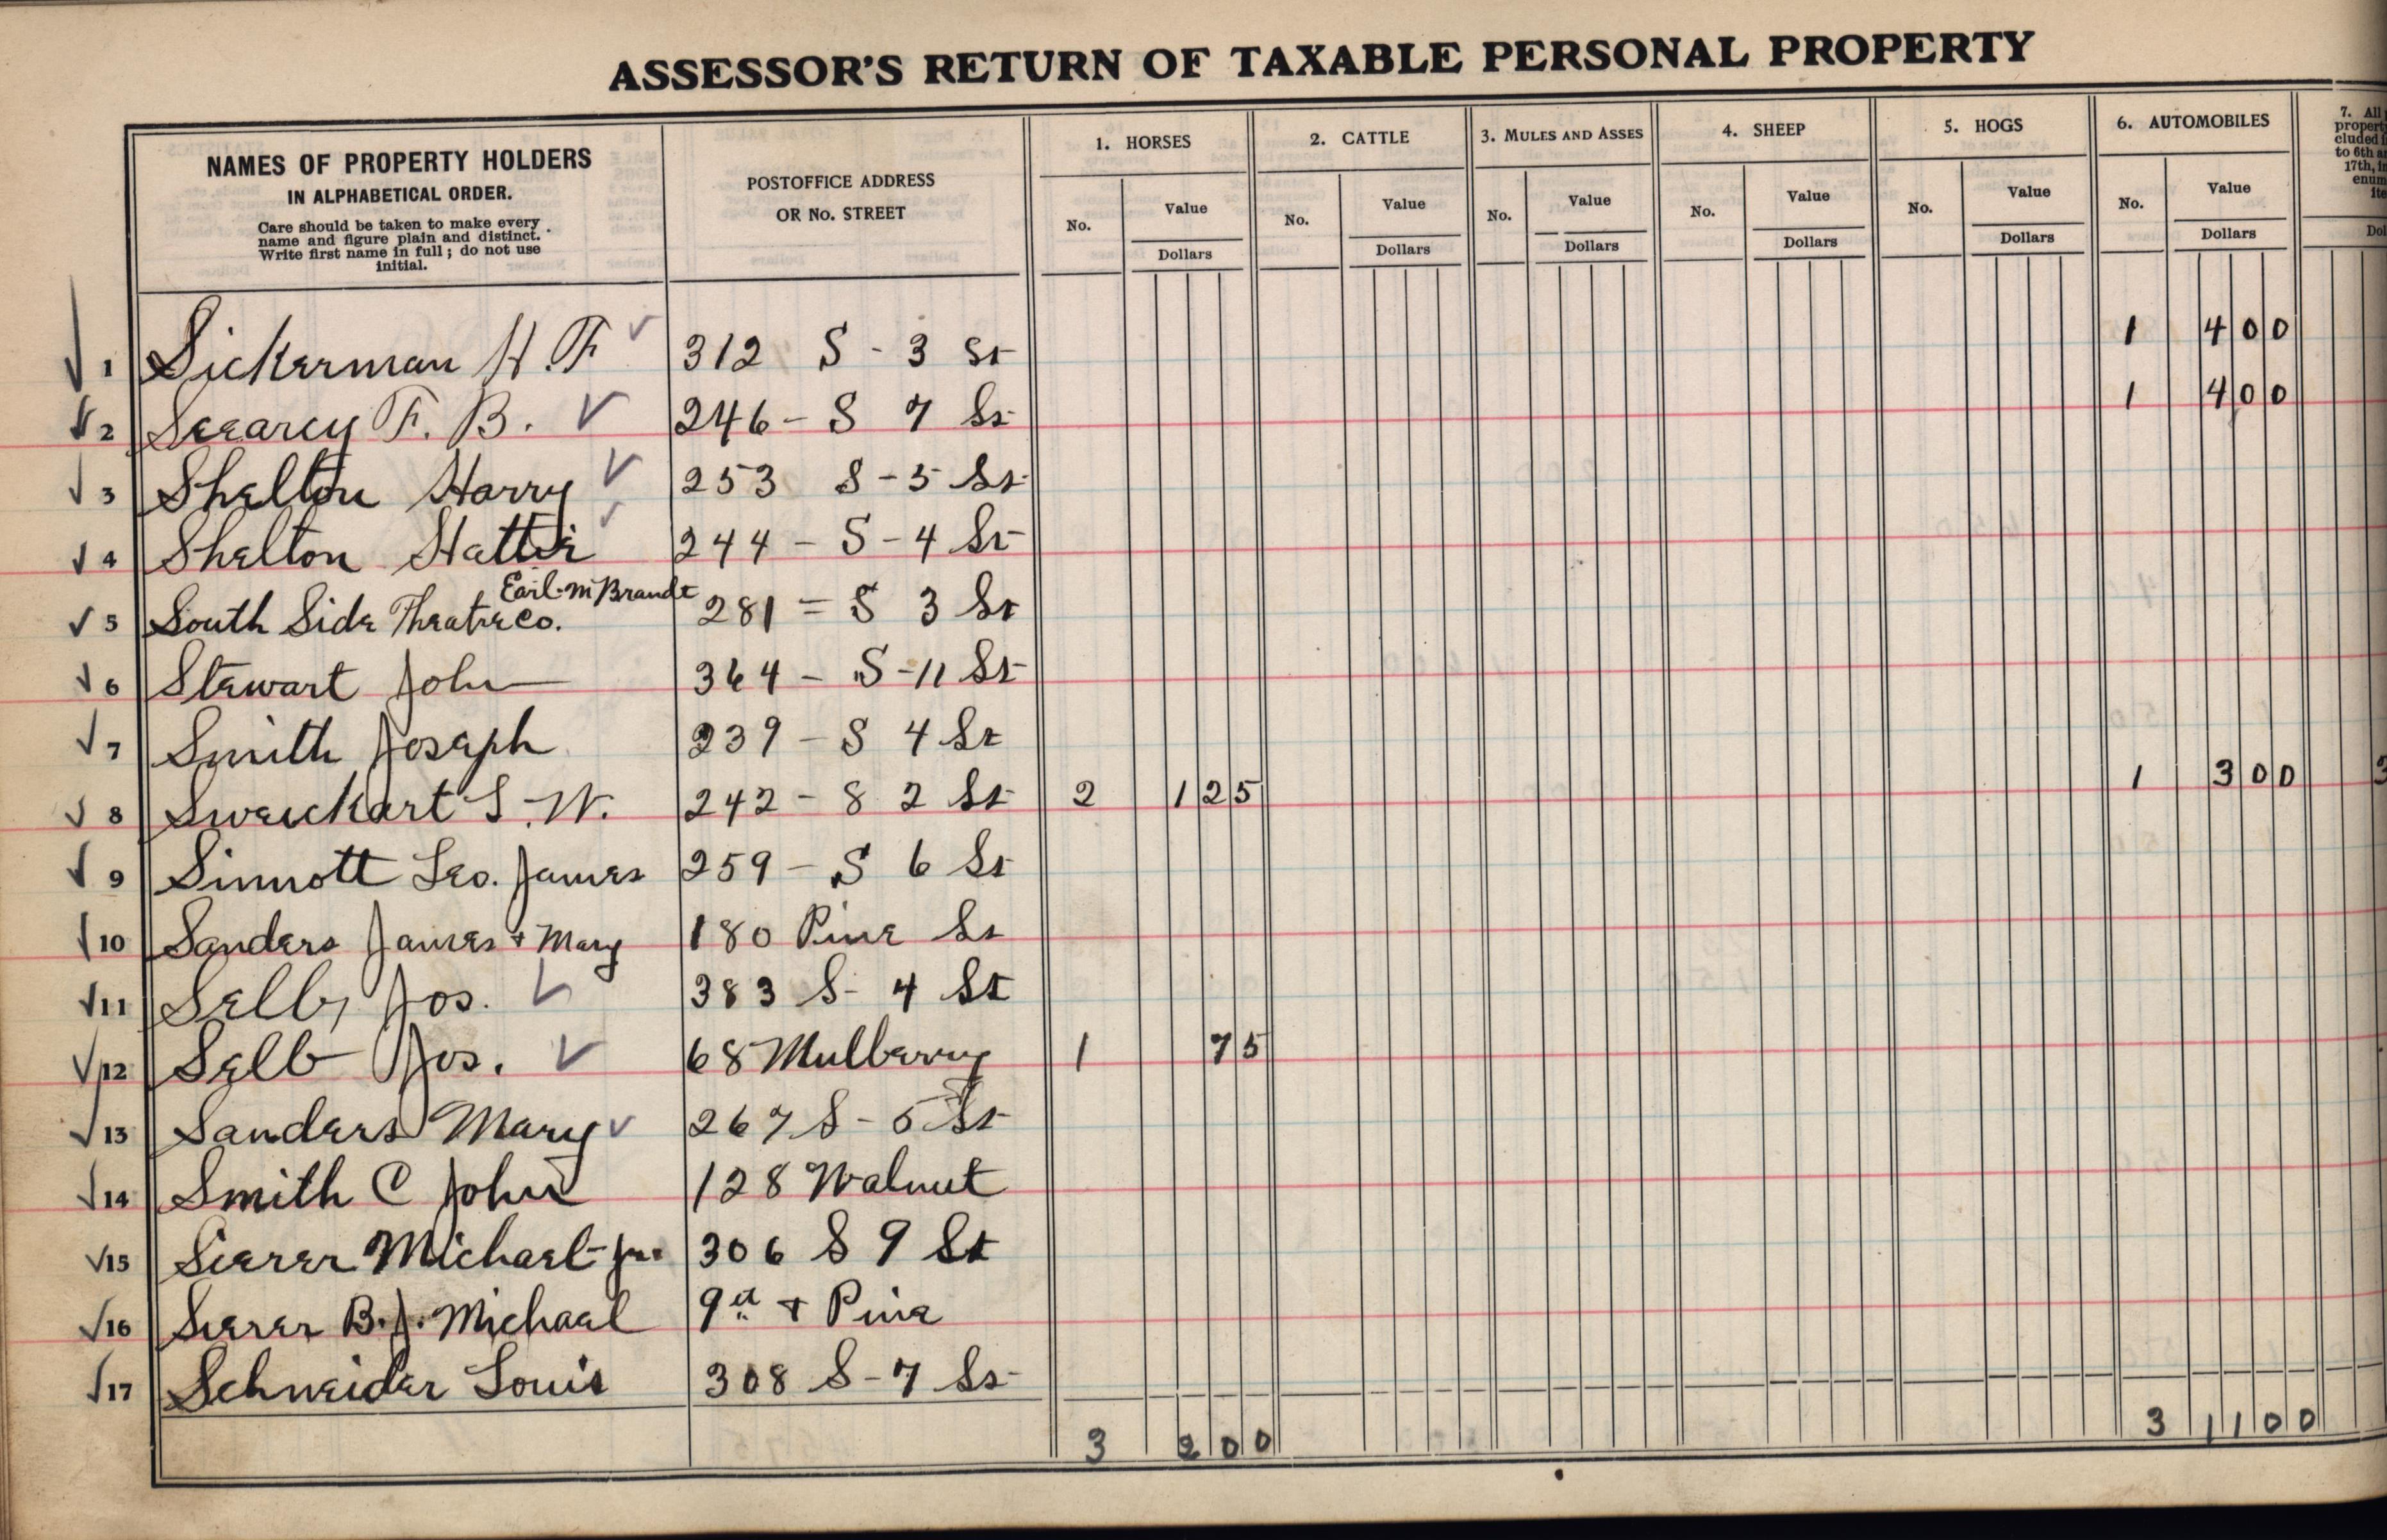 ASSESSOR'S RETURN OF TAXABLE PERSONAL PROPERTY
NAMES OF PROPERTY HOLDERS
IN ALPHABETICAL ORDER.
Care should be taken to make every
name and figure plain and distinct.
Write first name in full; do not use
initial.
POSTOFFICE ADDRESS
OR No. STREET
1. HORSES
No. Value
Dollars
2. CATTLE
No. Value
Dollars
3. MULES AND ASSES
No. Value
Dollars
4. SHEEP
No. Value
Dollars
5. HOGS
No. Value
Dollars
6. AUTOMOBILES
No. Value
Dollars
7. All
propert
cluded i
to 6th a
17th, in
enum
ite
Dol
1 Sickerman H. F 312 S - 3 St 1 400
2 Seearcy F. B. 246 - S 7 St 1 400
3 Shelton Harry 253 S - 5 St
4 Shelton Hattie 244 - S - 4 St
Earl M Brandt
5 South Side Theatre Co. 281 = S 3 St
6 Stewart John 364 - S - 11 St
7 Smith Joseph 239 - S 4 St
8 Sweickart S. W. 242 - S 2 St 2 125 1 300 3
9 Sinnott Leo. James 259 - S 6 St
10 Sanders James + Mary 180 Pine St
11 Selby Jos. 383 S - 4 St
12 Selb Jos. 68 Mulberry 1 75
13 Sanders Mary 267 S - 5 St
14 Smith C John 128 Walnut
15 Sierer Michael Jr. 306 S 9 St
16 Sierer B. J. Michael 9th + Pine
17 Schneider Louis 308 S - 7 St
3 200 3 1100